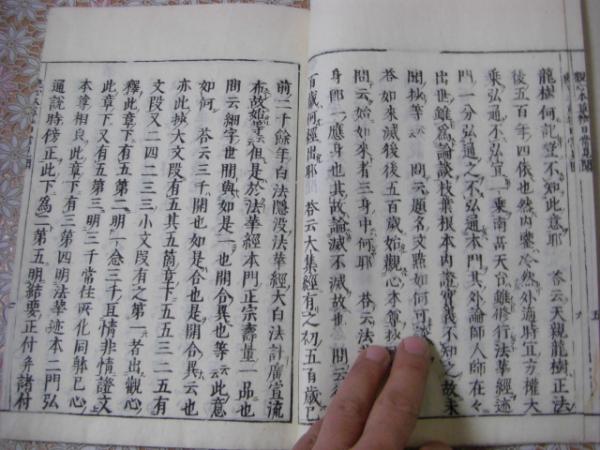 龍樹何記登不知此意耶　答云天親龍樹正法
後五百年四依也然內鑒冷然外適時宜方權大
乘弘通不弘宣一乘南岳天台雖修行法華經迹
門一分弘通之不弘通本門其外論師人師在々
出世雖為論談枝葉根本內證實義不知之故未
開抄等　問云題名文點如何可
答如來滅後後五百歲始觀心本尊抄
問云始如來者三身中何耶　答云法
身即應身也其故論滅不滅故也　問云
百歲何經出耶　答云大集經有之初五百歲已
前二千餘年白法隱沒法華經大白法計廣宣流
布故始等云但是於法華經本門正宗壽量一品也
問云細字世間與如是一也開合異也等云此意
如何　答云三千開也如是合也是開合異云也
亦此抄大文段有五其五箇章下五五三二五有
文段又二四二三三小文段有之第一者出觀心
釋此章下有五第二明一念三千亙情非情證文
此章下又有五第三明三千常住所化同躰已心
本尊相良此章下有三第四明法華迹本二門弘
通說時傍正此下為一第五明結要正付并諸付